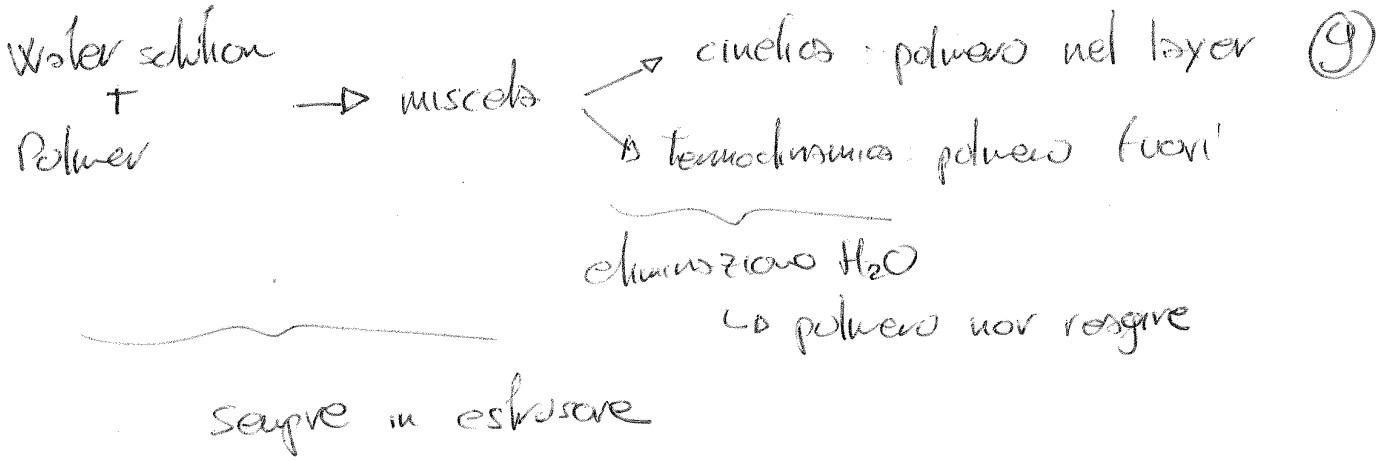 Water solution + Polymer → miscela
cinetica : polimero nel layer
9
termodinamica : polimero fuori
eliminazione H₂O
↳ polimero non reagire
sempre in estrusore